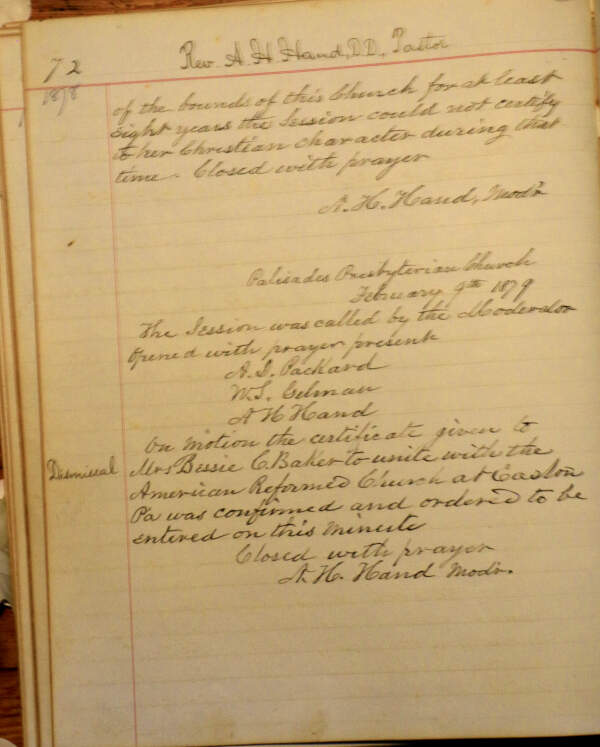 72
Rev. A. H. Hand, D.D., Pastor
1878
of the bounds of this Church for at least
eight years the Session could not certify
to her Christian character during that
time - Closed with prayer
A. H. Hand, Modr.
Palisades Presbyterian Church
February 9th 1879
The Session was called by the Moderator
opened with prayer present
W. S. Gilman
A H Hand
On motion the certificate given to
Dismissal
Mrs Bessie C. Baker to unite with the
American Reformed Church at Easton
Pa was confirmed and ordered to be
entered on this minute
Closed with prayer
A. H. Hand Modr.